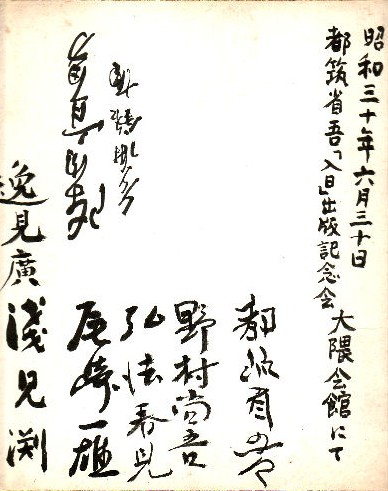 昭和三十年六月三十日
都筑省吾「入日」出版記念会
大隈会館にて
都筑省吾
野村尚吾
弘法春見
尾崎一雄
淺見渕
逸見廣